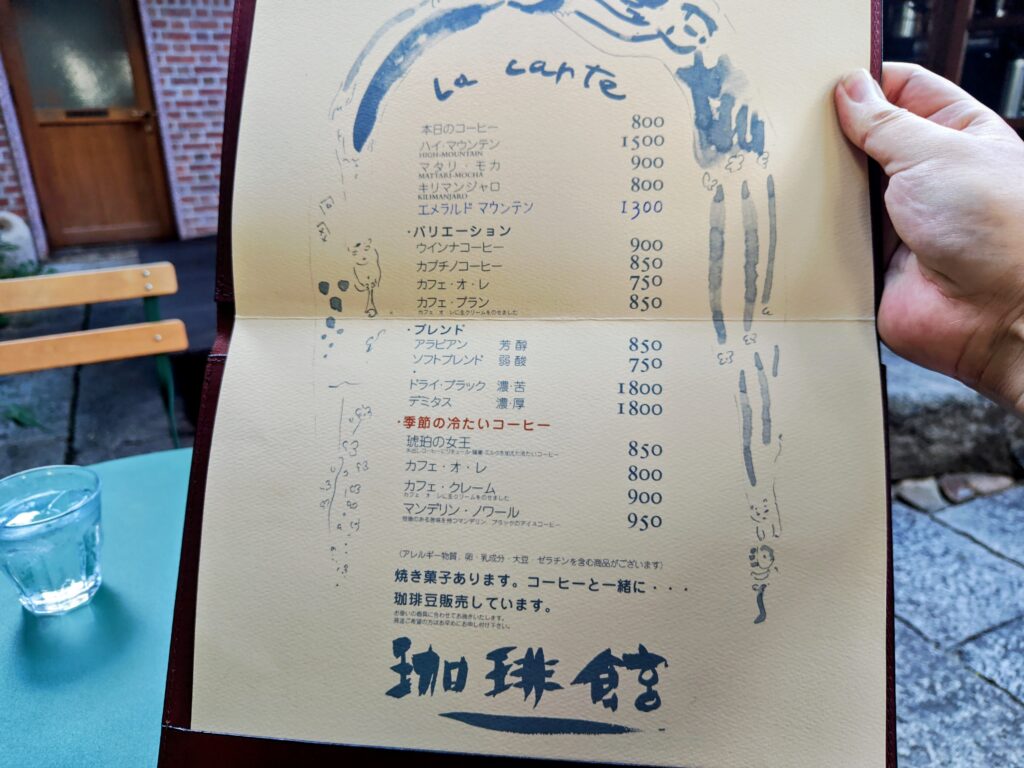 La carte
本日のコーヒー 800
ハイ・マウンテン 1500
HIGH-MOUNTAIN
マタリ・モカ 900
MATTARI-MOCHA
キリマンジャロ 800
KILIMANJARO
エメラルド マウンテン 1300
・バリエーション
ウインナコーヒー 900
カプチノコーヒー 850
カフェ・オ・レ 750
カフェ・ブラン 850
カフェ オ レに生クリームをのせました
・ブレンド
アラビアン 芳醇 850
ソフトブレンド 弱酸 750
ドライ・ブラック 濃・苦 1800
デミタス 濃・厚 1800
・季節の冷たいコーヒー
琥珀の女王 850
カフェ・オ・レ 800
カフェ・クレーム 900
カフェ オ レに生クリームをのせました
マンデリン・ノワール 950
(アレルギー物質、卵・乳成分・大豆・ゼラチンを含む商品がございます)
焼き菓子あります。コーヒーと一緒に・・・
珈琲豆販売しています。
お使いの器具に合わせてお挽きいたします。
珈琲館